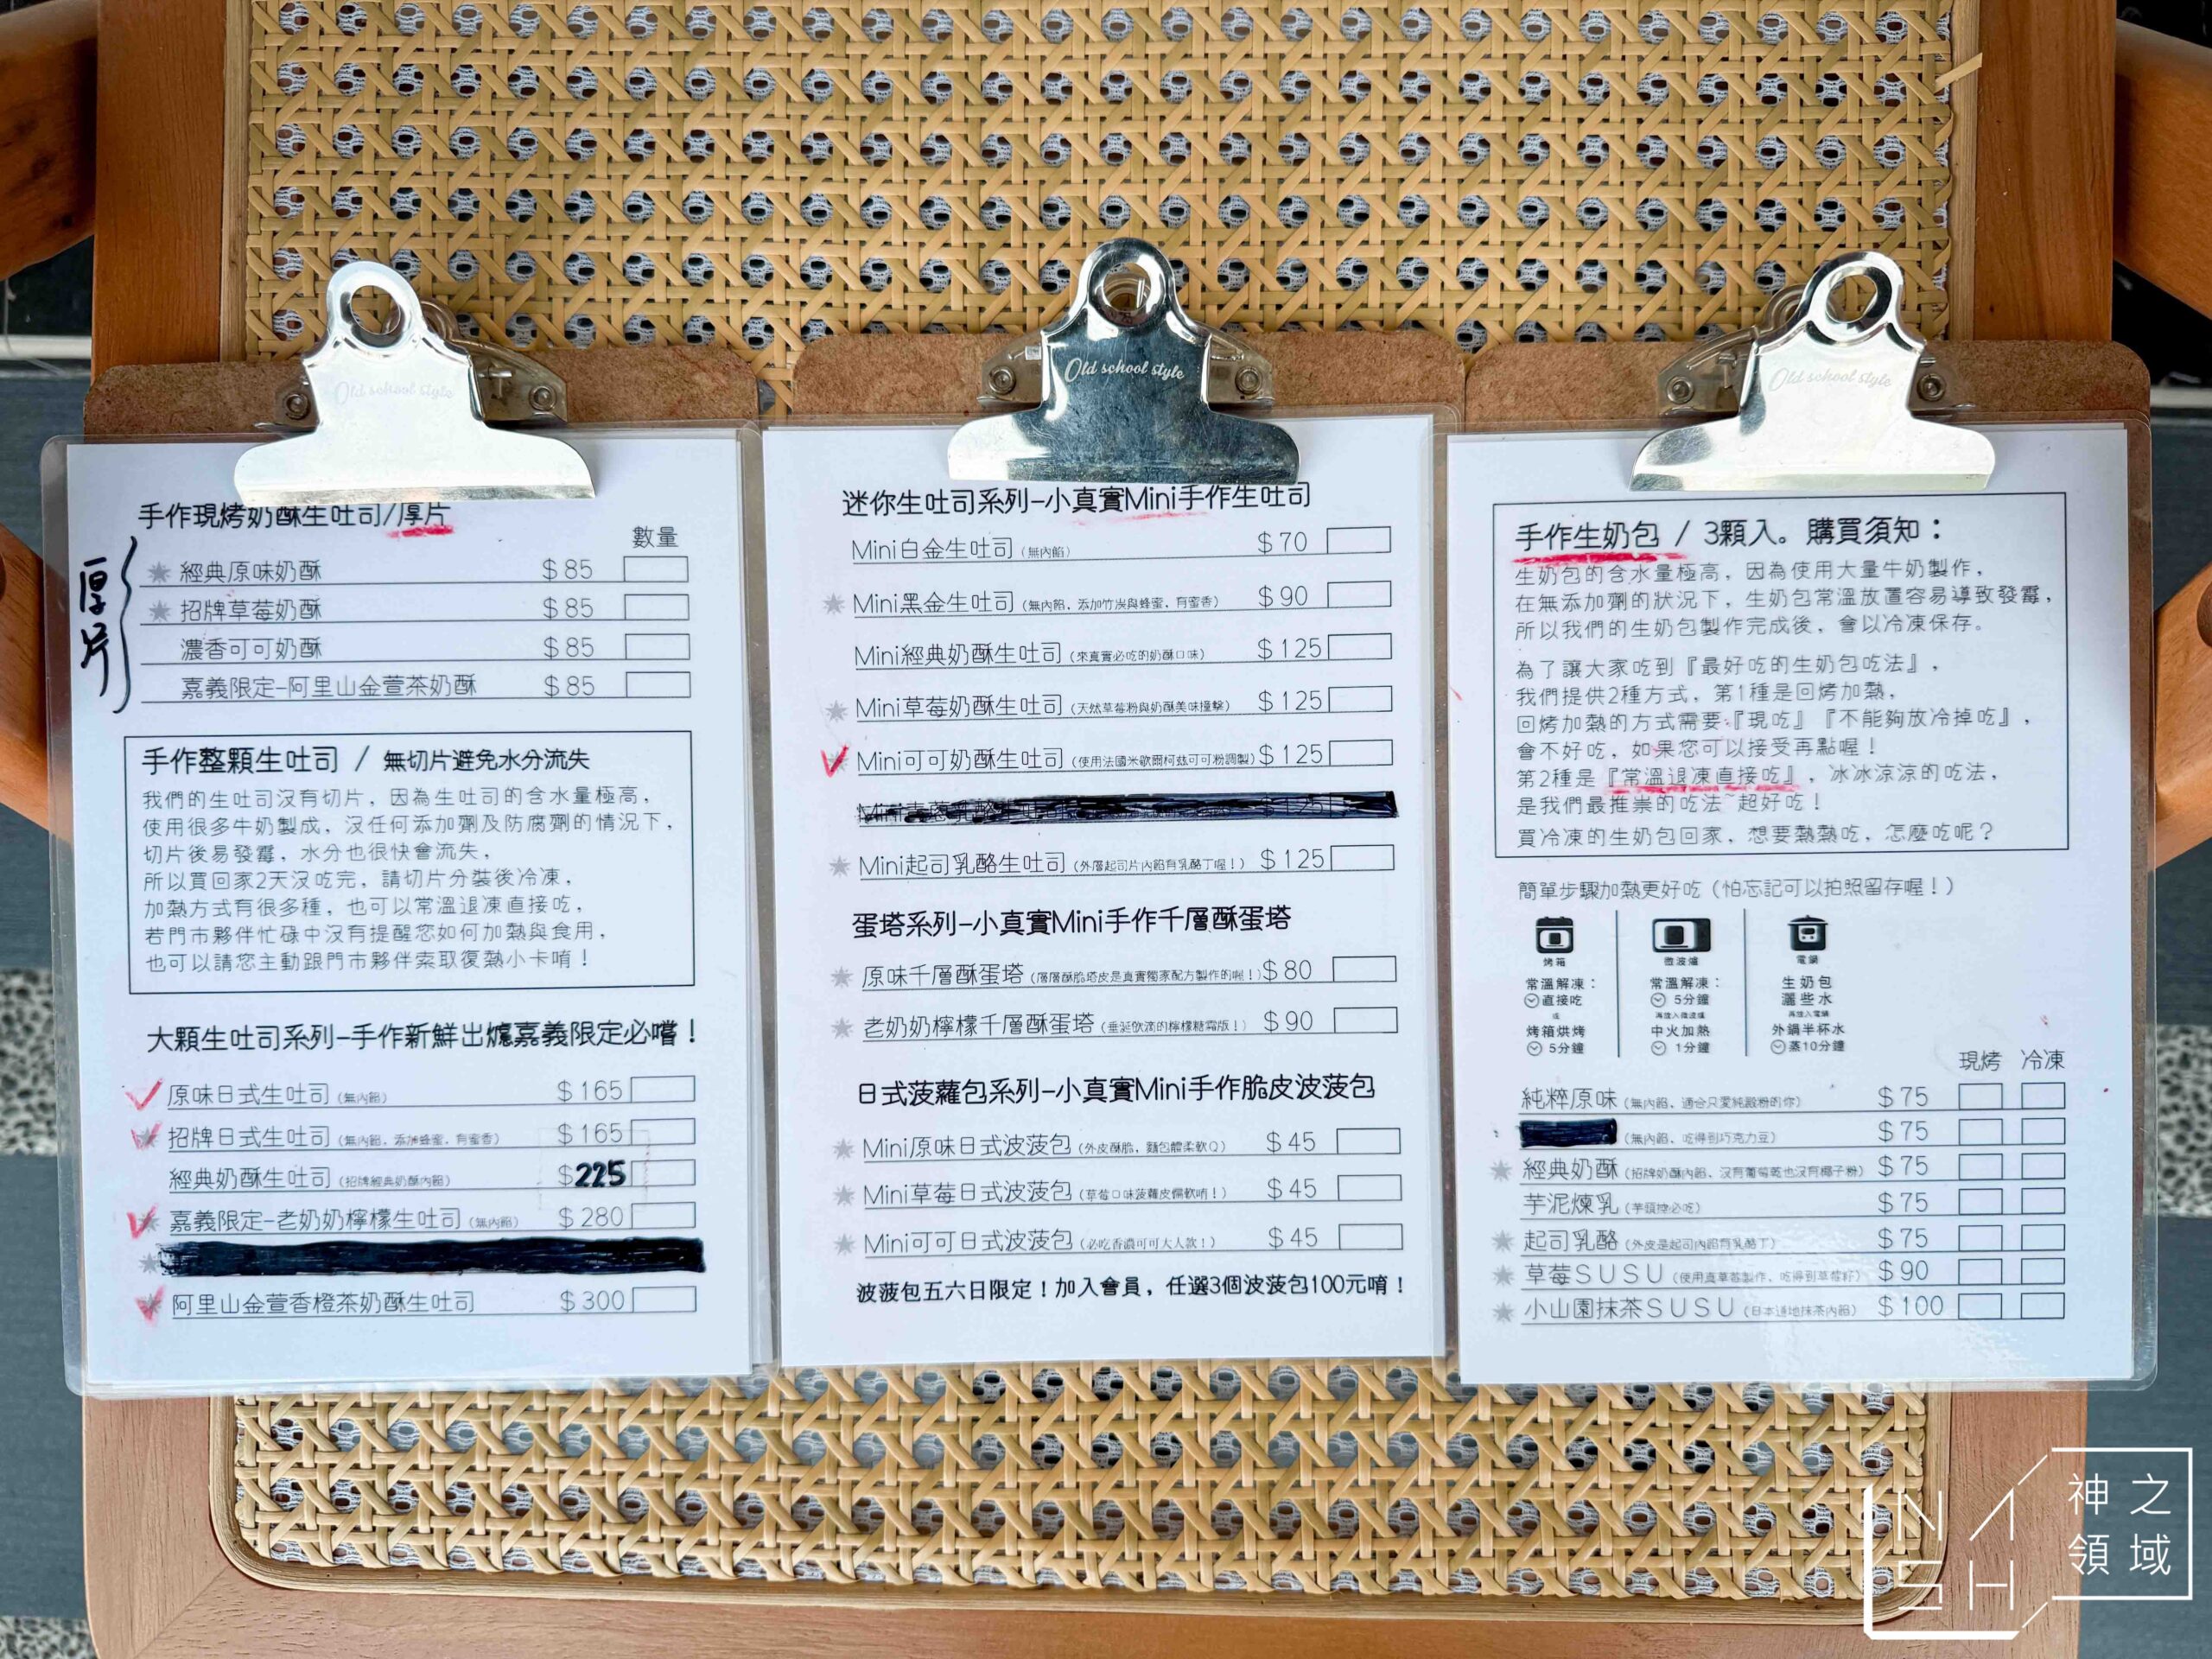 Old school style
手作現烤奶酥生吐司/厚片
數量
厚片
經典原味奶酥 $85
招牌草莓奶酥 $85
濃香可可奶酥 $85
嘉義限定-阿里山金萱茶奶酥 $85
手作整顆生吐司 / 無切片避免水分流失
我們的生吐司沒有切片，因為生吐司的含水量極高，
使用很多牛奶製成，沒任何添加劑及防腐劑的情況下，
切片後易發霉，水分也很快會流失，
所以買回家2天沒吃完，請切片分裝後冷凍，
加熱方式有很多種，也可以常溫退凍直接吃，
若門市夥伴忙碌中沒有提醒您如何加熱與食用，
也可以請您主動跟門市夥伴索取復熱小卡唷！
大顆生吐司系列-手作新鮮出爐嘉義限定必嚐！
原味日式生吐司（無內餡） $165
招牌日式生吐司（無內餡、添加蜂蜜、有蜜香） $165
經典奶酥生吐司（招牌經典奶酥內餡） $225
嘉義限定-老奶奶檸檬生吐司（無內餡） $280
阿里山金萱香橙茶奶酥生吐司 $300
Old school style
迷你生吐司系列-小真實Mini手作生吐司
Mini白金生吐司（無內餡） $70
Mini黑金生吐司（無內餡、添加竹炭與蜂蜜、有蜜香） $90
Mini經典奶酥生吐司（來真實必吃的奶酥口味） $125
Mini草莓奶酥生吐司（天然草莓粉與奶酥美味撞擊） $125
Mini可可奶酥生吐司（使用法國米歇爾柯茲可可粉調製） $125
Mini起司乳酪生吐司（外層起司片內餡有乳酪丁喔！） $125
蛋塔系列-小真實Mini手作千層酥蛋塔
原味千層酥蛋塔（層層酥脆塔皮是真實獨家配方製作的喔！） $80
老奶奶檸檬千層酥蛋塔（垂涎欲滴的檸檬糖霜版！） $90
日式菠蘿包系列-小真實Mini手作脆皮波菠包
Mini原味日式波菠包（外皮酥脆，麵包體柔軟Q） $45
Mini草莓日式波菠包（草莓口味菠蘿皮偏軟唷！） $45
Mini可可日式波菠包（必吃香濃可可大人款！） $45
波菠包五六日限定！加入會員，任選3個波菠包100元唷！
Old school style
手作生奶包 / 3顆入。購買須知：
生奶包的含水量極高，因為使用大量牛奶製作，
在無添加劑的狀況下，生奶包常溫放置容易導致發霉，
所以我們的生奶包製作完成後，會以冷凍保存。
為了讓大家吃到『最好吃的生奶包吃法』，
我們提供2種方式，第1種是回烤加熱，
回烤加熱的方式需要『現吃』『不能夠放冷掉吃』，
會不好吃，如果您可以接受再點喔！
第2種是『常溫退凍直接吃』，冰冰涼涼的吃法，
是我們最推崇的吃法~超好吃！
買冷凍的生奶包回家，想要熱熱吃，怎麼吃呢？
簡單步驟加熱更好吃（怕忘記可以拍照留存喔！）
烤箱
常溫解凍：
直接吃
或
烤箱烘烤
5分鐘
微波爐
常溫解凍：
5分鐘
再放入微波爐
中火加熱
1分鐘
電鍋
生奶包
灑些水
再放入電鍋
外鍋半杯水
蒸10分鐘
現烤 冷凍
純粹原味（無內餡、適合只愛純澱粉的你） $75
（無內餡、吃得到巧克力豆） $75
經典奶酥（招牌奶酥內餡、沒有葡萄乾也沒有椰子粉） $75
芋泥煉乳（芋頭控必吃） $75
起司乳酪（外皮是起司內餡有乳酪丁） $75
草莓SUSU（使用真草莓製作、吃得到草莓籽） $90
小山園抹茶SUSU（日本道地抹茶內餡） $100
NASH
神之
領域